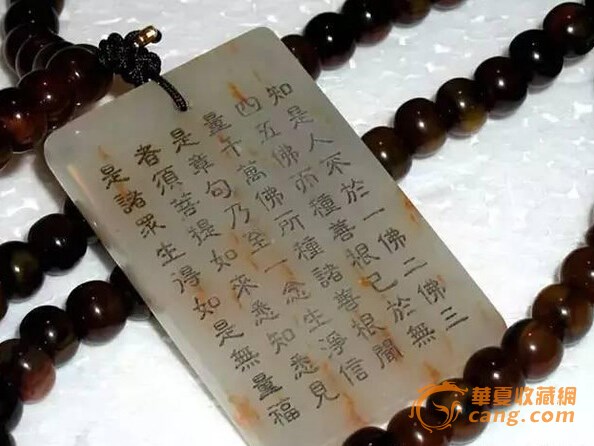 知是人不於一佛二佛三
四五佛而種善根已於無
量千萬佛所種諸善根聞
是章句乃至一念生淨信
者須菩提如來悉知悉見
是諸眾生得如是無量福
華夏收藏網
cang.com